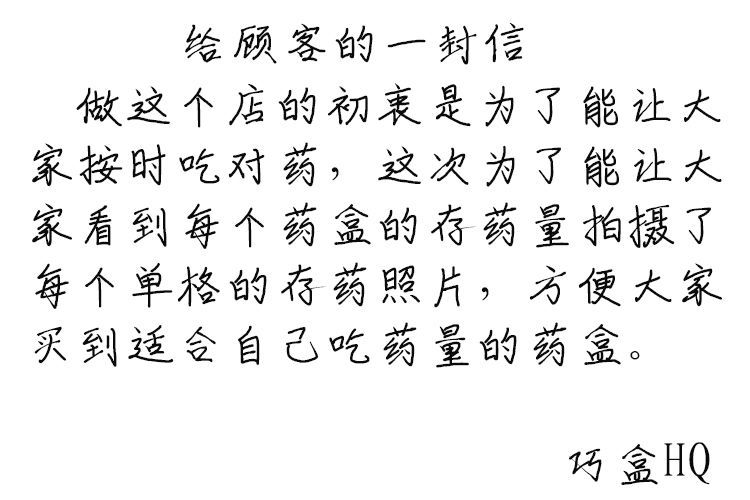 给顾客的一封信
做这个店的初衷是为了能让大
家按时吃对药，这次为了能让大
家看到每个药盒的存药量拍摄了
每个单格的存药照片，方便大家
买到适合自己吃药量的药盒。
巧盒HQ